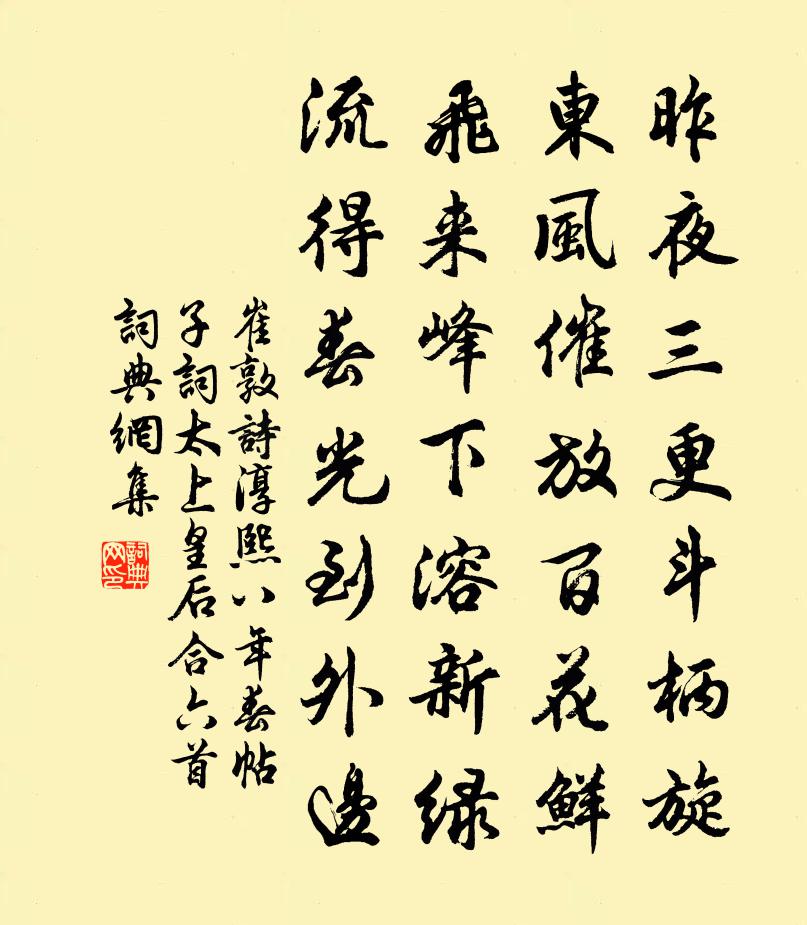 昨夜三更斗柄旋
東風催放百花鮮
飛来峰下溶新緑
流得春光到外邊
崔敦詩淳熙八年春帖
子詞太上皇后合六首
詞典網集
詞典
网印